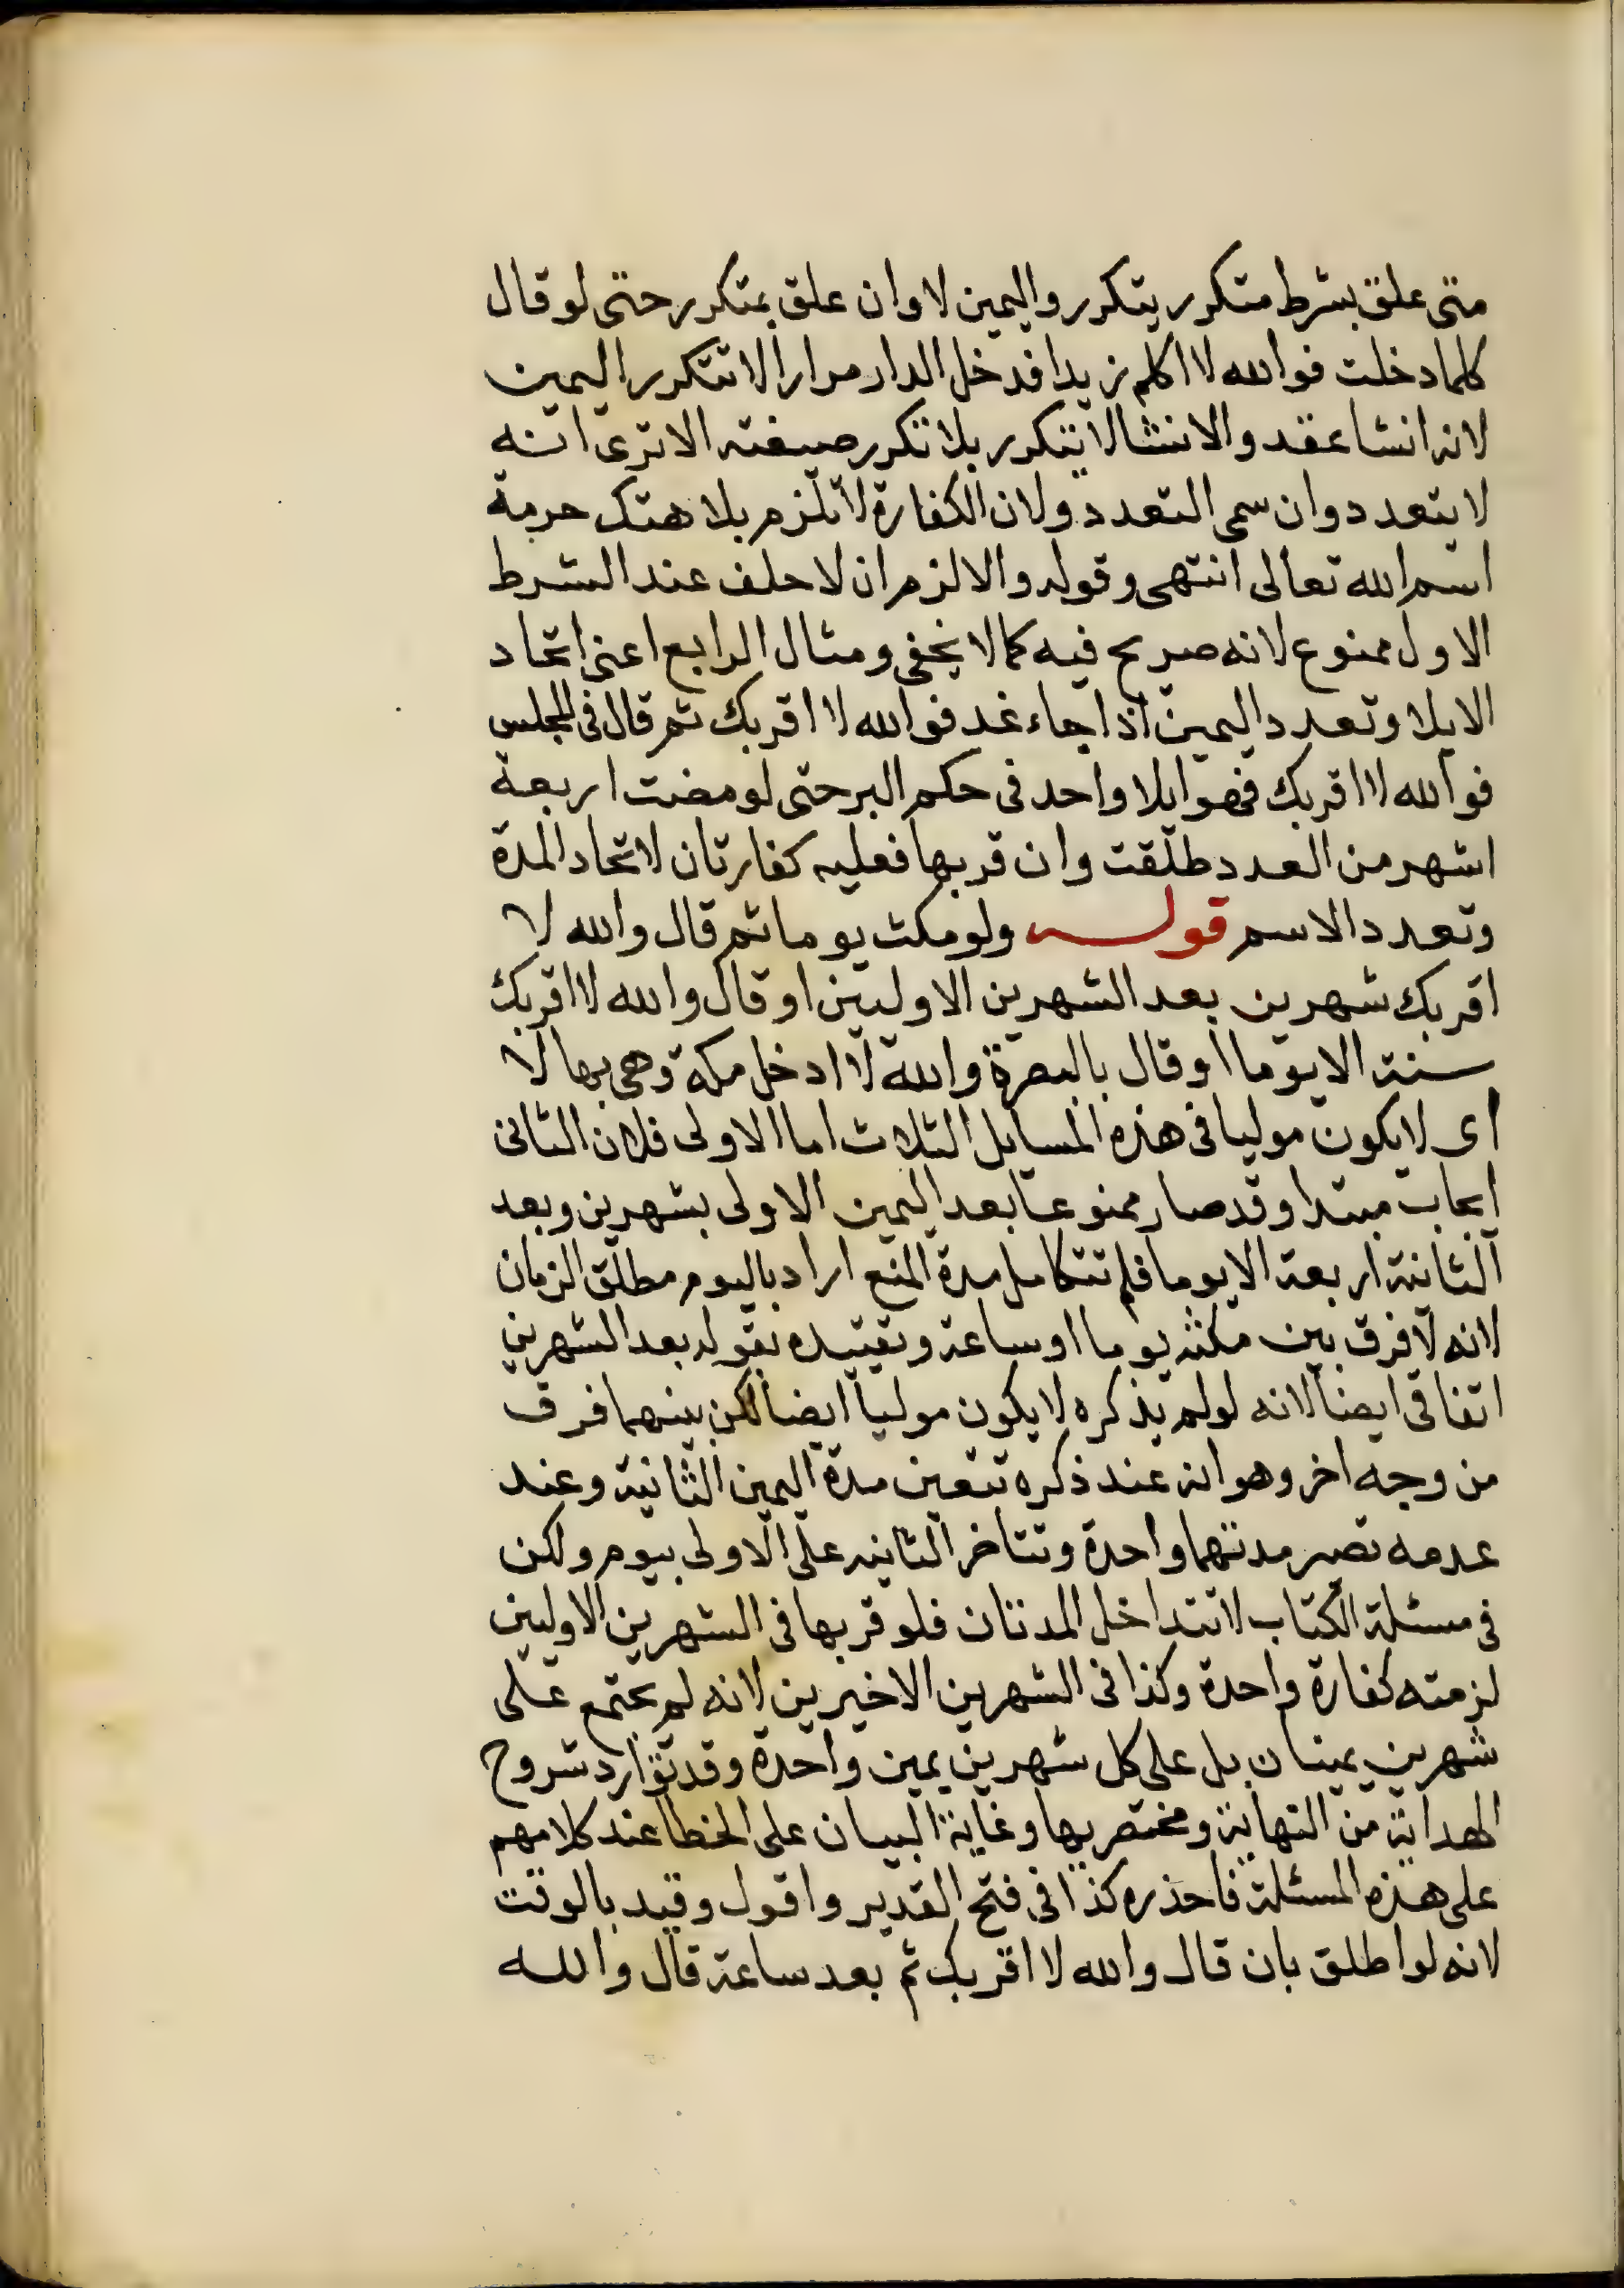 متى علق بشرط متكرر يتكرر واليمين لا وان علق بمتكرر حتى لو قال
كلما دخلت فوالله لا اكلم زيدا فدخل الدار مرارا لا تتكرر اليمين
لانه انشا عقد والانشا لا يتكرر بلا تكرر صيغته الا ترى انه
لا يتعدد وان سمى التعدد ولان الكفارة لا تلزم بلا هتك حرمة
اسم الله تعالى انتهى وقوله والا لزم ان لا حلف عند الشرط
الاول ممنوع لانه صريح فيه كما لا يخفى ومثال الرابع اعنى اتحاد
الايلا وتعدد اليمين اذا جاء غد فوالله لا اقربك ثم قال فى المجلس
فوالله لا اقربك فهو ايلا واحد فى حكم البر حتى لو مضت اربعة
اشهر من العدد طلقت وان قربها فعليه كفارتان لاتحاد المدة
وتعدد الاسم قوله ولو مكث يوما ثم قال والله لا
اقربك شهرين بعد الشهرين الاوليين او قال والله لا اقربك
سنة الا يوما او قال بالبصرة والله لا ادخل مكة وهى بها لا
اى لا يكون موليا فى هذه المسايل الثلاث اما الاولى فلان الثانى
ايجاب مبتدا وقد صار ممنوعا بعد اليمين الاولى بشهرين وبعد
الثانية اربعة الا يوما فلم تتكامل مدة المنع اراد باليوم مطلق الزمان
لانه لا فرق بين مكثه يوما او ساعة وتقييده بقوله بعد الشهرين
اتفاقى ايضا لانه لو لم يذكره لا يكون موليا ايضا لكن بينهما فرق
من وجه اخر وهو انه عند ذكره تتعين مدة اليمين الثانية وعند
عدمه تصير مدتهما واحدة وتتاخر الثانيه على الاولى بيوم ولكن
فى مسئلة الكتاب لا تتداخل المدتان فلو قربها فى الشهرين الاوليين
لزمته كفارة واحدة وكذا فى الشهرين الاخيرين لانه لم يجتمع على
شهرين يمينان بل على كل شهرين يمين واحدة وقد توارد شروح
الهداية من النهاية ومختصريها وغاية البيان على الخطا عند كلامهم
على هذه المسئلة فاحذره كذا فى فتح القدير واقول وقيد بالوقت
لانه لو اطلق بان قال والله لا اقربك ثم بعد ساعة قال والله